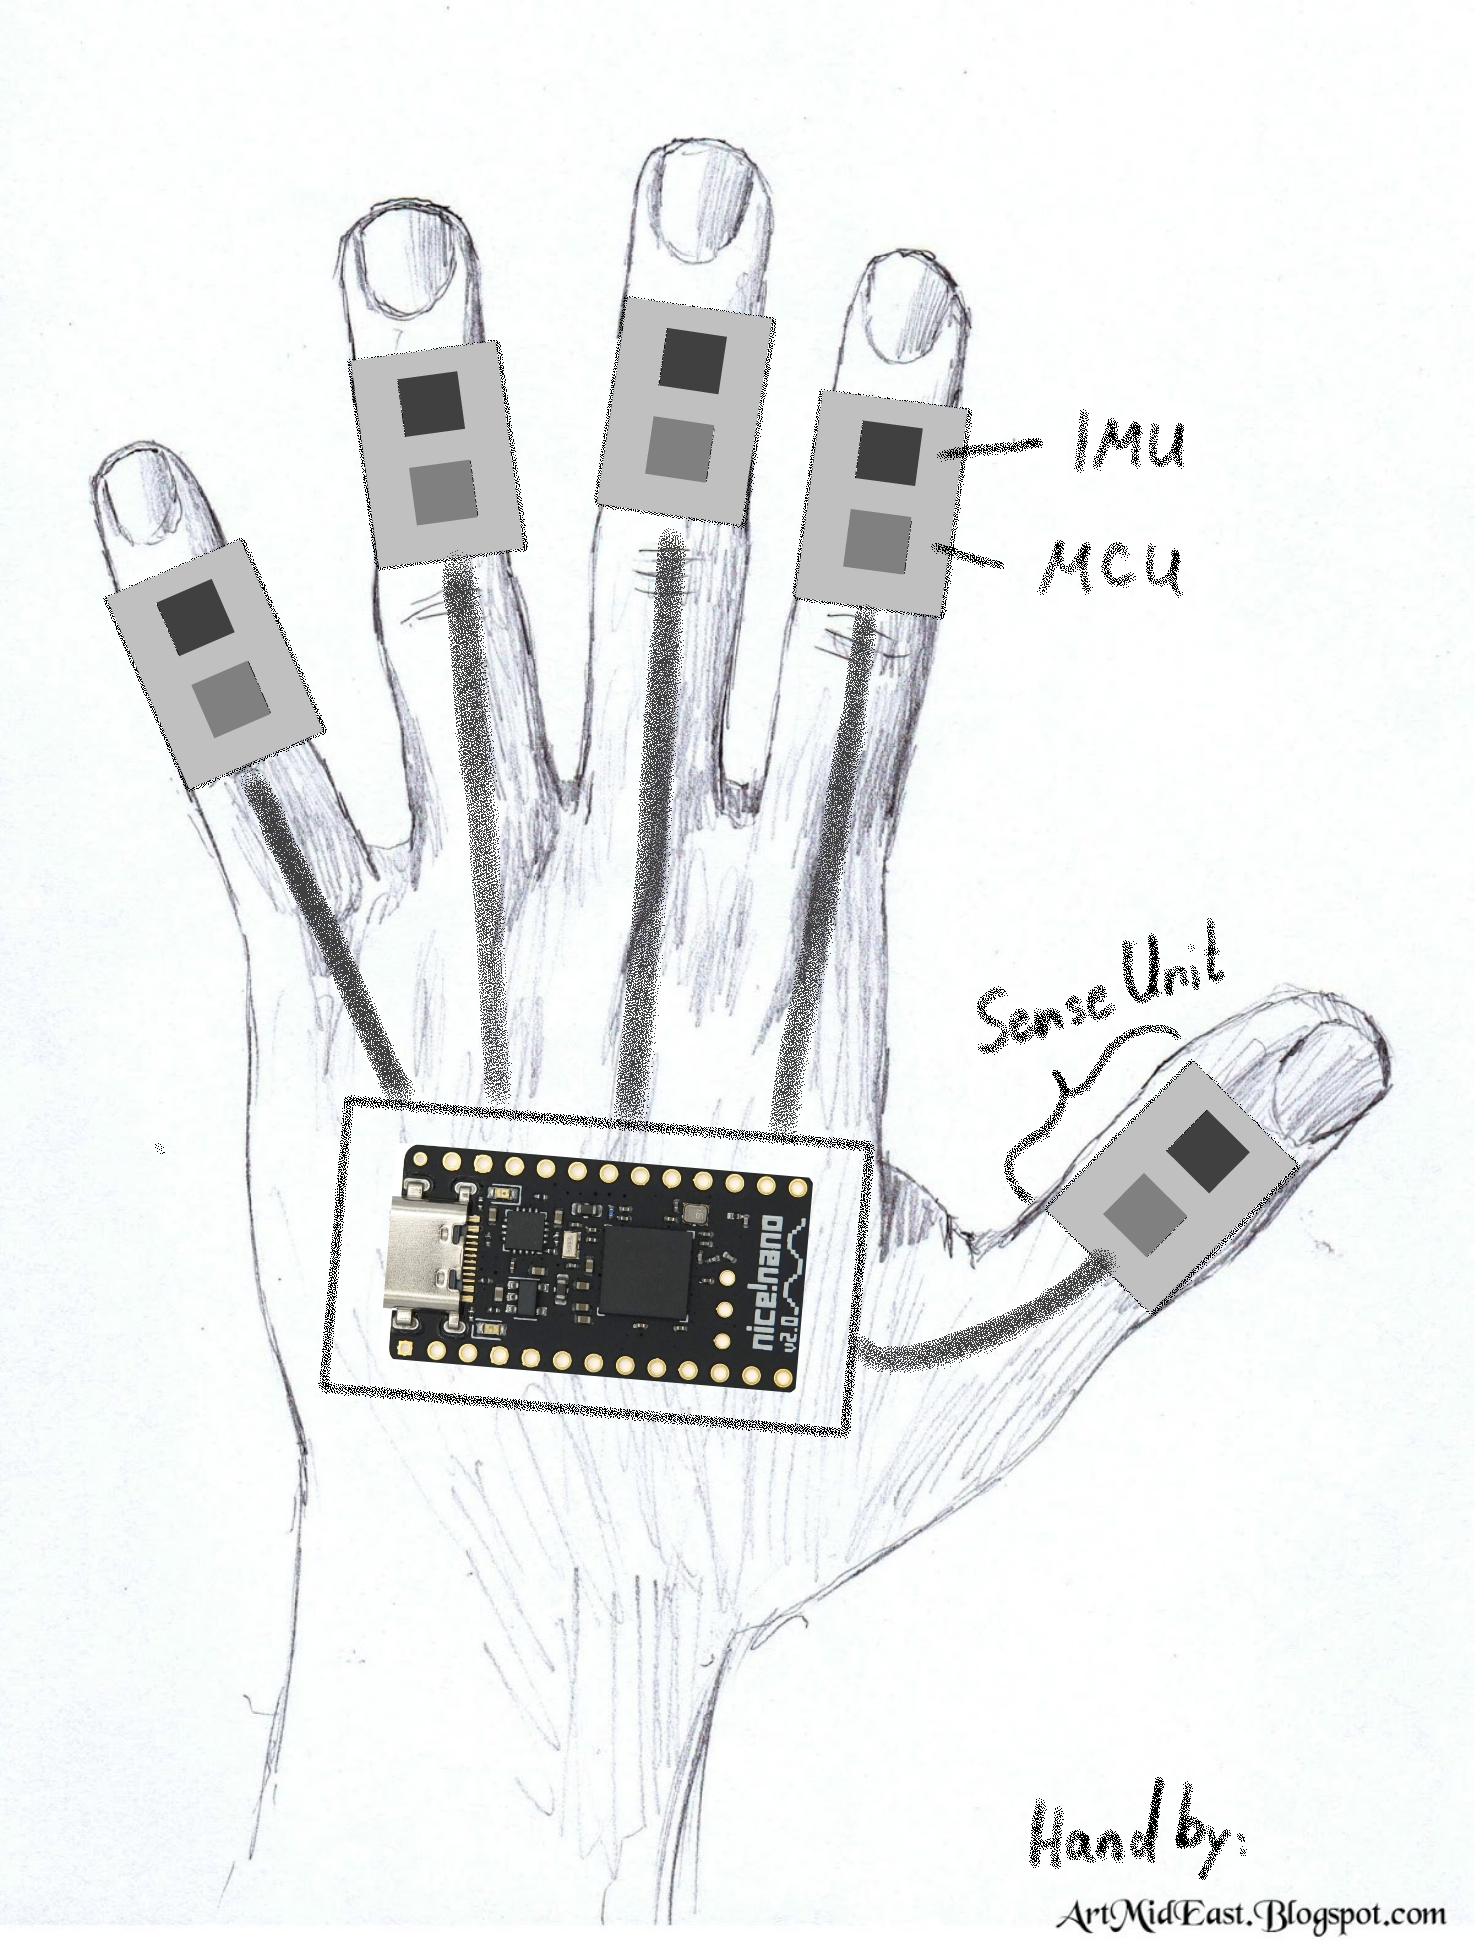 IMU
MCU
Sense Unit
nice!nano
v2.0
Hand by:
ArtMidEast.Blogspot.com